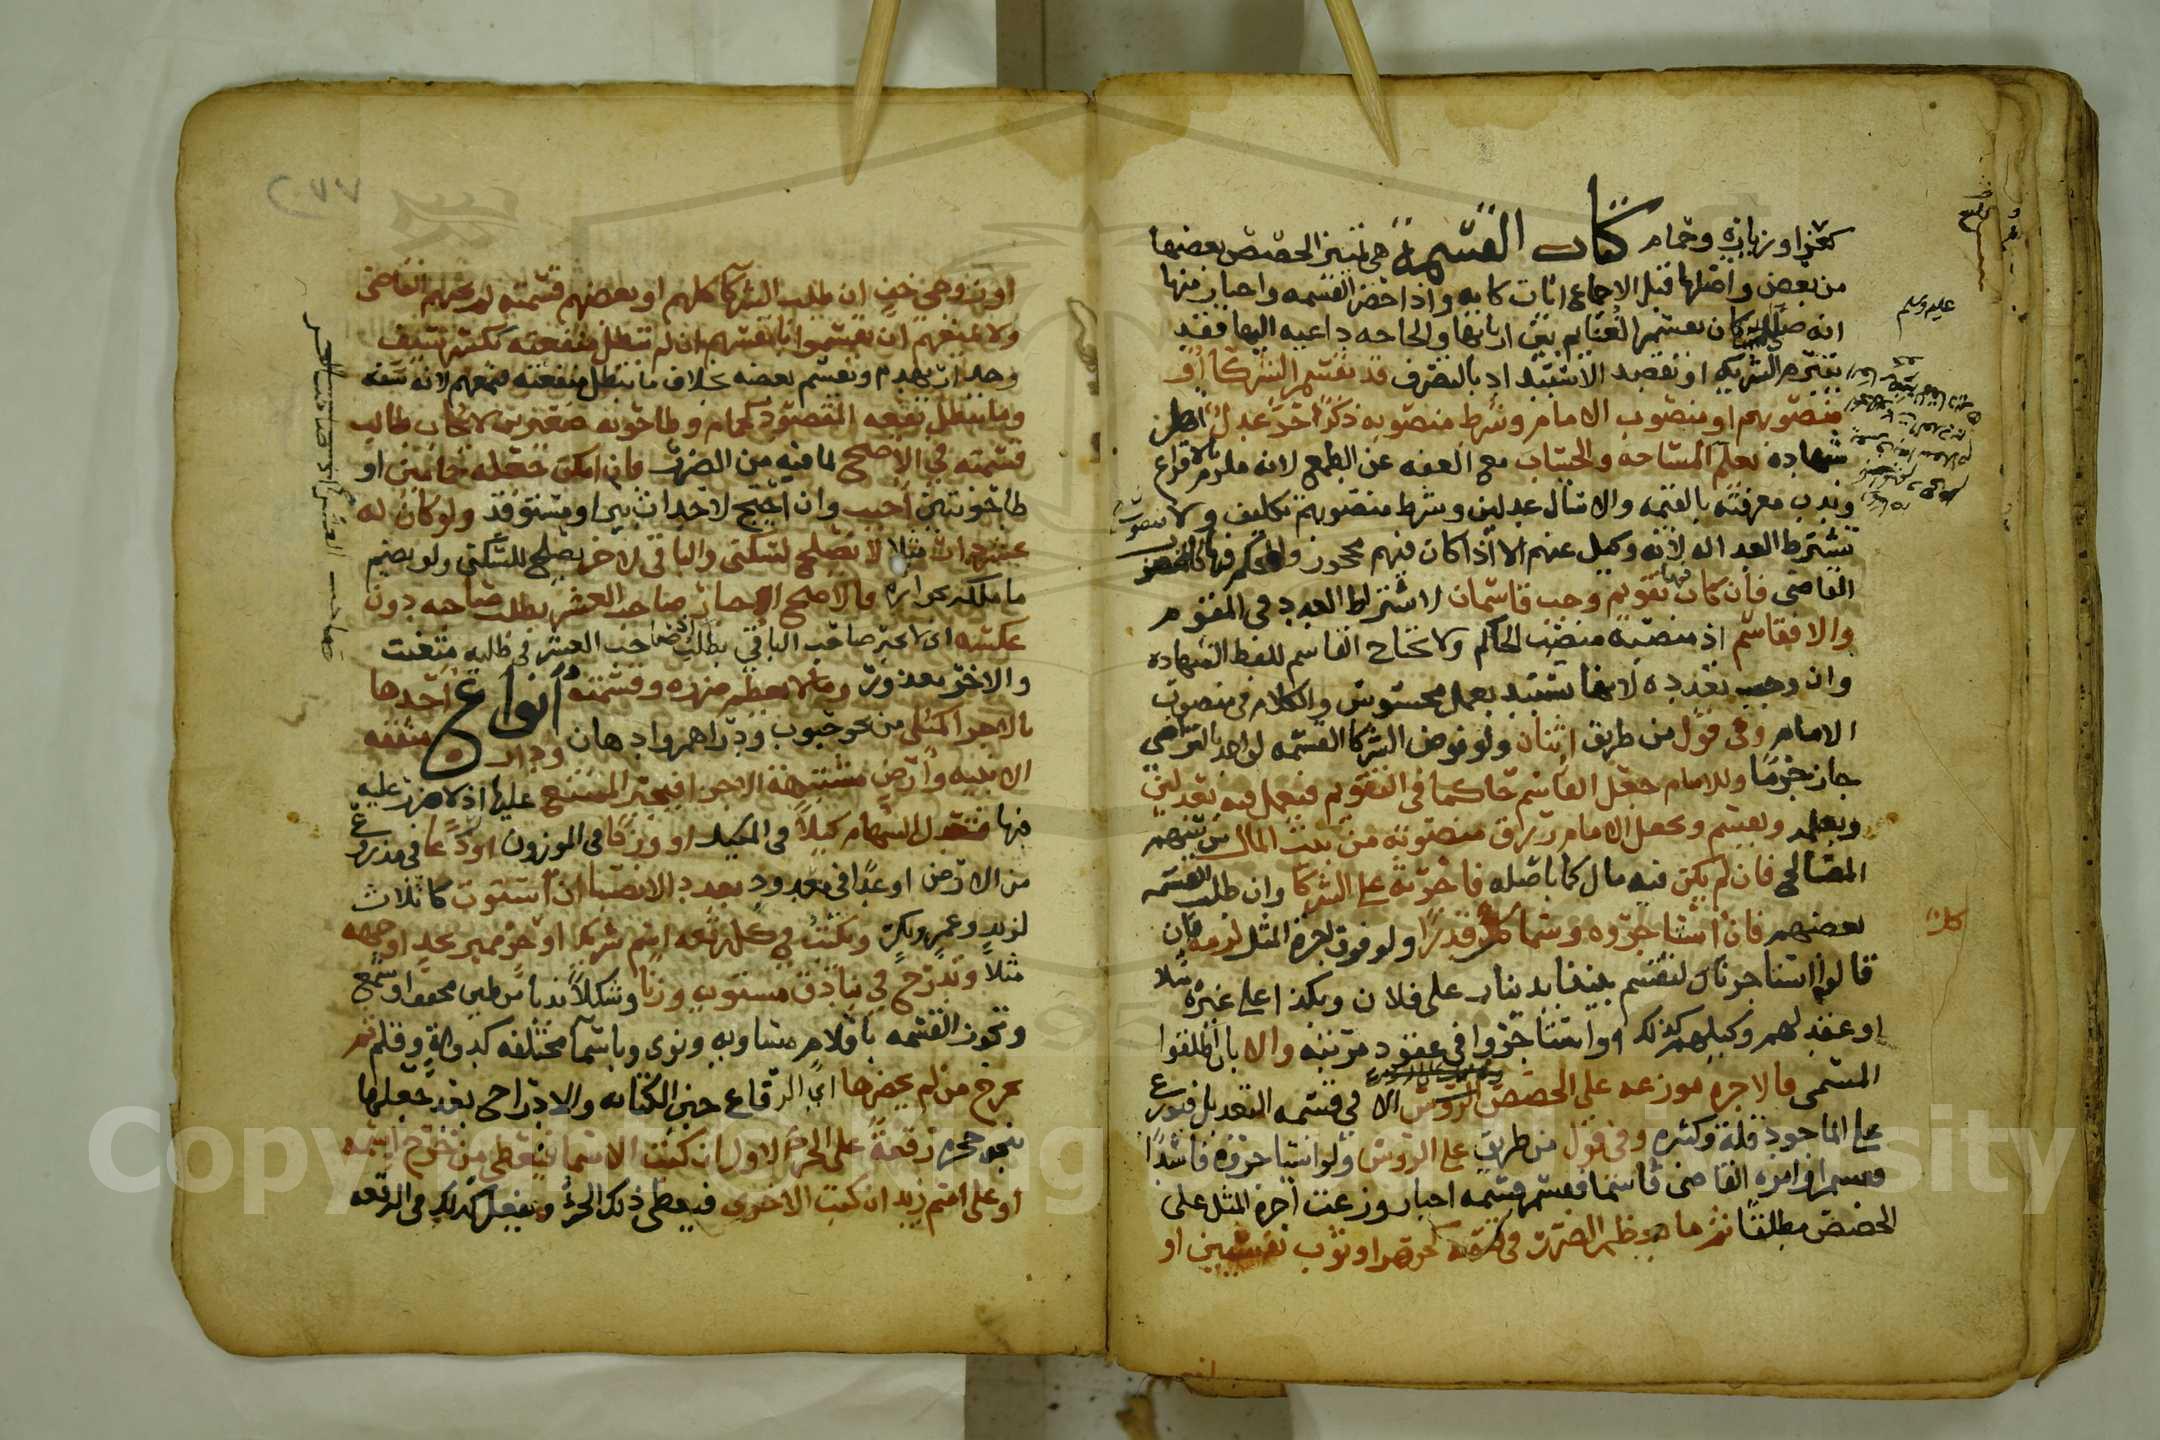 كعنز او زياده وحمام كتاب القسمة هي تمييز الحصص بعضها
من بعض واصلها قبل الاجماع ايات كايه واذا حضر القسمه واخبار منها
انه صلى الله كان يقسم الغنايم بين اربابها والحاجه داعيه اليها فقد
يتبرم الشريك او يقصد الاستبداد بالتصرف قد يقسم الشركا او
منصوبهم او منصوب الامام وشرط منصوبه ذكر حر عدل
شهاده يعلم المساحه والحساب مع العفه عن الطمع لانه ملزم
وندب معرفته بالقيمه والا سأل عدلين وشرط منصوبهم تكليف ولا
تشترط العداله لانه وكيل عنهم الا اذا كان فيهم محجور
القاضي فان كان فيها تقويم وجب قاسمان لاشتراط العدد في المقوم
والا فقاسم اذ منصبه منصب الحاكم ولا يحتاج القاسم للفظ الشهاده
وان وجب تعدده لانها تستند بعمل محسوس والكلام في منصوب
الامام وفي قول من طريق اثنان ولو فوض الشركا القسمه لواحد بالتراضي
جاز جزما وللامام جعل القاسم حاكما في التقويم فيعمل فيه بعدلين
وبعلمه ويقسم ويجعل الامام رزق منصوبه من بيت المال من سهم
المصالح فان لم يكن فيه مال كما باصله فاجرته على الشركا وان طلب القسمه
بعضهم فان استاجروه وسما كل قدرا ولو فوق اجرة المثل لزمه فان
قالوا استاجرناك لتقسم بيننا بدينار على فلان وبكذا على غيره مثلا
او عقد لهم وكيلهم كذلك او استاجروا في عقود مرتبه والا بان اطلقوا
المسمى فالاجره موزعه على الحصص الا في قسمه التعديل فتوزع
على الماخوذ قلة وكثره وفي قول من طريق على الروس ولو استاجروه فاسدا
فقسم او امره القاضي قاسما فقسم قسمه اجبار وزعت اجرة المثل على
الحصص مطلقا ثم ما عظم الضرر في قسمته كجوهر او ثوب نفيسين او
عليه وسلم
او زوجي خف ان طلب الشركا كلهم او بعضهم قسمته لم يجبهم القاضي
ولا يمنعهم ان يقسموا بانفسهم ان لم تبطل منفعته بكسر سيف
وجدار يهدم ويقسم بعضه بخلاف ما تبطل منفعته فيمنعهم لانه سفه
وما يبطل نفعه المقصود كحمام وطاحونه صغيرين لا يجاب طالب
قسمته في الاصح لما فيه من الضرر فان امكن جعله حمامين او
طاحونتين اجيب وان احتيج لاحداث بير او مستوقد ولو كان له
عشر دار مثلا لا يصلح لسكنى والباقي لاخر يصلح للسكنى ولو بضم
ما ملكه بجواره فالاصح اجبار صاحب العشر بطلب صاحبه دون
عكسه اي لا يجبر صاحب الباقي بطلب صاحب العشر في طلبه متعنت
والاخر معذور وما لا يعظم ضرره وقسمته انواع احدها
بالاجزا كمثلي من نحو حبوب ودراهم وادهان ودار متفقه
الابنيه وارض مشتبهة الاجزا فيجبر الممتنع عليها اذ لا ضرر عليه
فيها فتعدل السهام كيلا في المكيل او وزنا في الموزون او ذرعا في مذروع
من الارض او عدا في معدود بعدد الانصبا ان استوت كاثلاث
لزيد وعمر وبكر ويكتب في كل رقعه اسم شريك او جزء مميز بحد او جهه
مثلا وتدرج في بنادق مستويه وزنا وشكلا ندبا من طين مجفف او شمع
وتجوز القسمه باقلام متساويه ونوى وباسما مختلفه كدواة وقلم ثم
يخرج من لم يحضرها اي الرقاع حين الكتابه والادراج بعد جعلها
بنحو حجره رقعة على الجزء الاول ان كتبت الاسما فيعطى من خرج اسمه
او على اسم زيد ان كتبت الاخرى فيعطى ذلك الجزء ويفعل كذلك في الرقعه